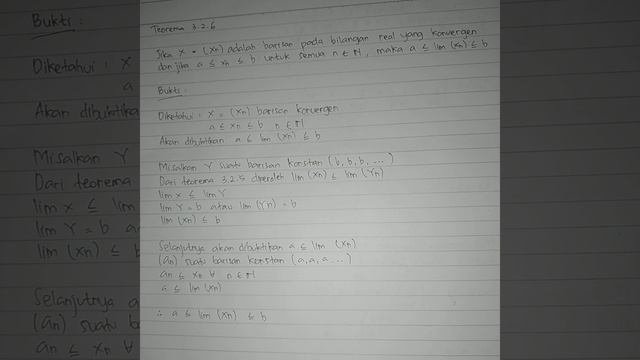 Teorema 3.2.6
Jika X = (xn) adalah barisan pada bilangan real yang konvergen
dan jika a ≤ xn ≤ b untuk semua n ∈ N, maka a ≤ lim (xn) ≤ b
Bukti :
Diketahui : X = (xn) barisan konvergen
a ≤ xn ≤ b n ∈ N
Akan dibuktikan a ≤ lim (xn) ≤ b
Misalkan Y suatu barisan konstan (b, b, b, ...)
Dari teorema 3.2.5 diperoleh lim (xn) ≤ lim (Yn)
lim x ≤ lim Y
lim Y = b atau lim (Yn) = b
lim (xn) ≤ b
Selanjutnya akan dibuktikan a ≤ lim (xn)
(an) suatu barisan konstan (a, a, a ...)
an ≤ xn ∀ n ∈ N
a ≤ lim (xn)
∴ a ≤ lim (xn) ≤ b
Bukti :
Diketahui : X
a
Akan dibuktika
Misalkan Y
Dari teorema
lim x ≤ lim
lim Y = b a
lim (xn) ≤ b
Selanjutnya a
(an) suatu b
an ≤ xn ∀